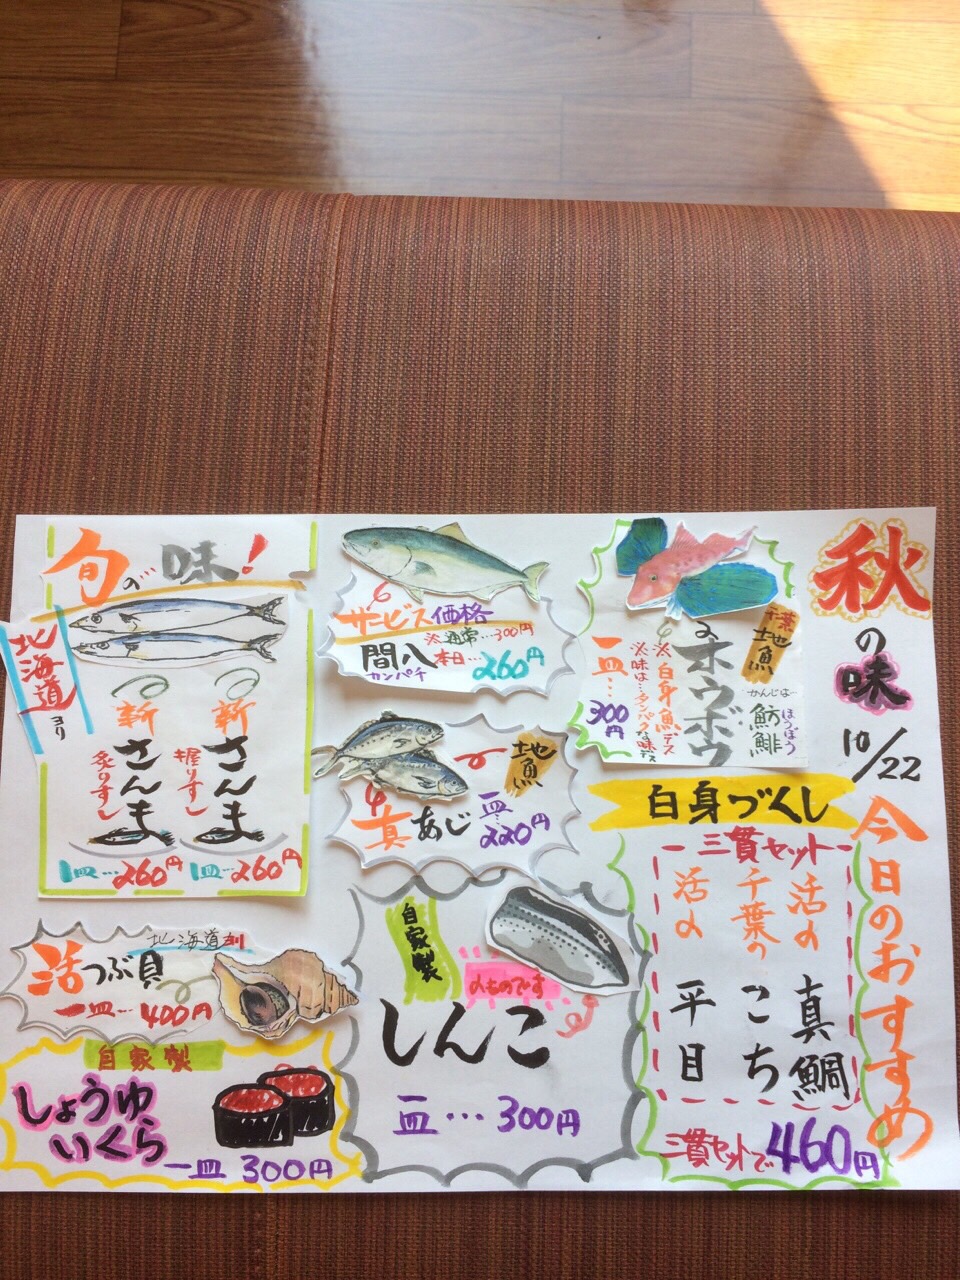 秋
の味
10/22
今日のおすすめ
千葉
地魚
ホウボウ
かんじは…
魴鮄
ほうぼう
※白身魚デス
※味は…タンパクな味デス
一皿…
300円
白身づくし
三貫セット
活〆
真鯛
千葉の
こち
活〆
平目
三貫セットで460円
サービス価格
※通常…300円
間八
カンパチ
本日…260円
地魚
真あじ
一皿…220円
自家製
〆ものです
しんこ
一皿…300円
旬の…味!
北海道ヨリ
新さんま
握りすし
一皿…260円
新さんま
炙りすし
一皿…260円
北海道ヨリ
活つぶ貝
一皿…400円
自家製
しょうゆ
いくら
一皿300円